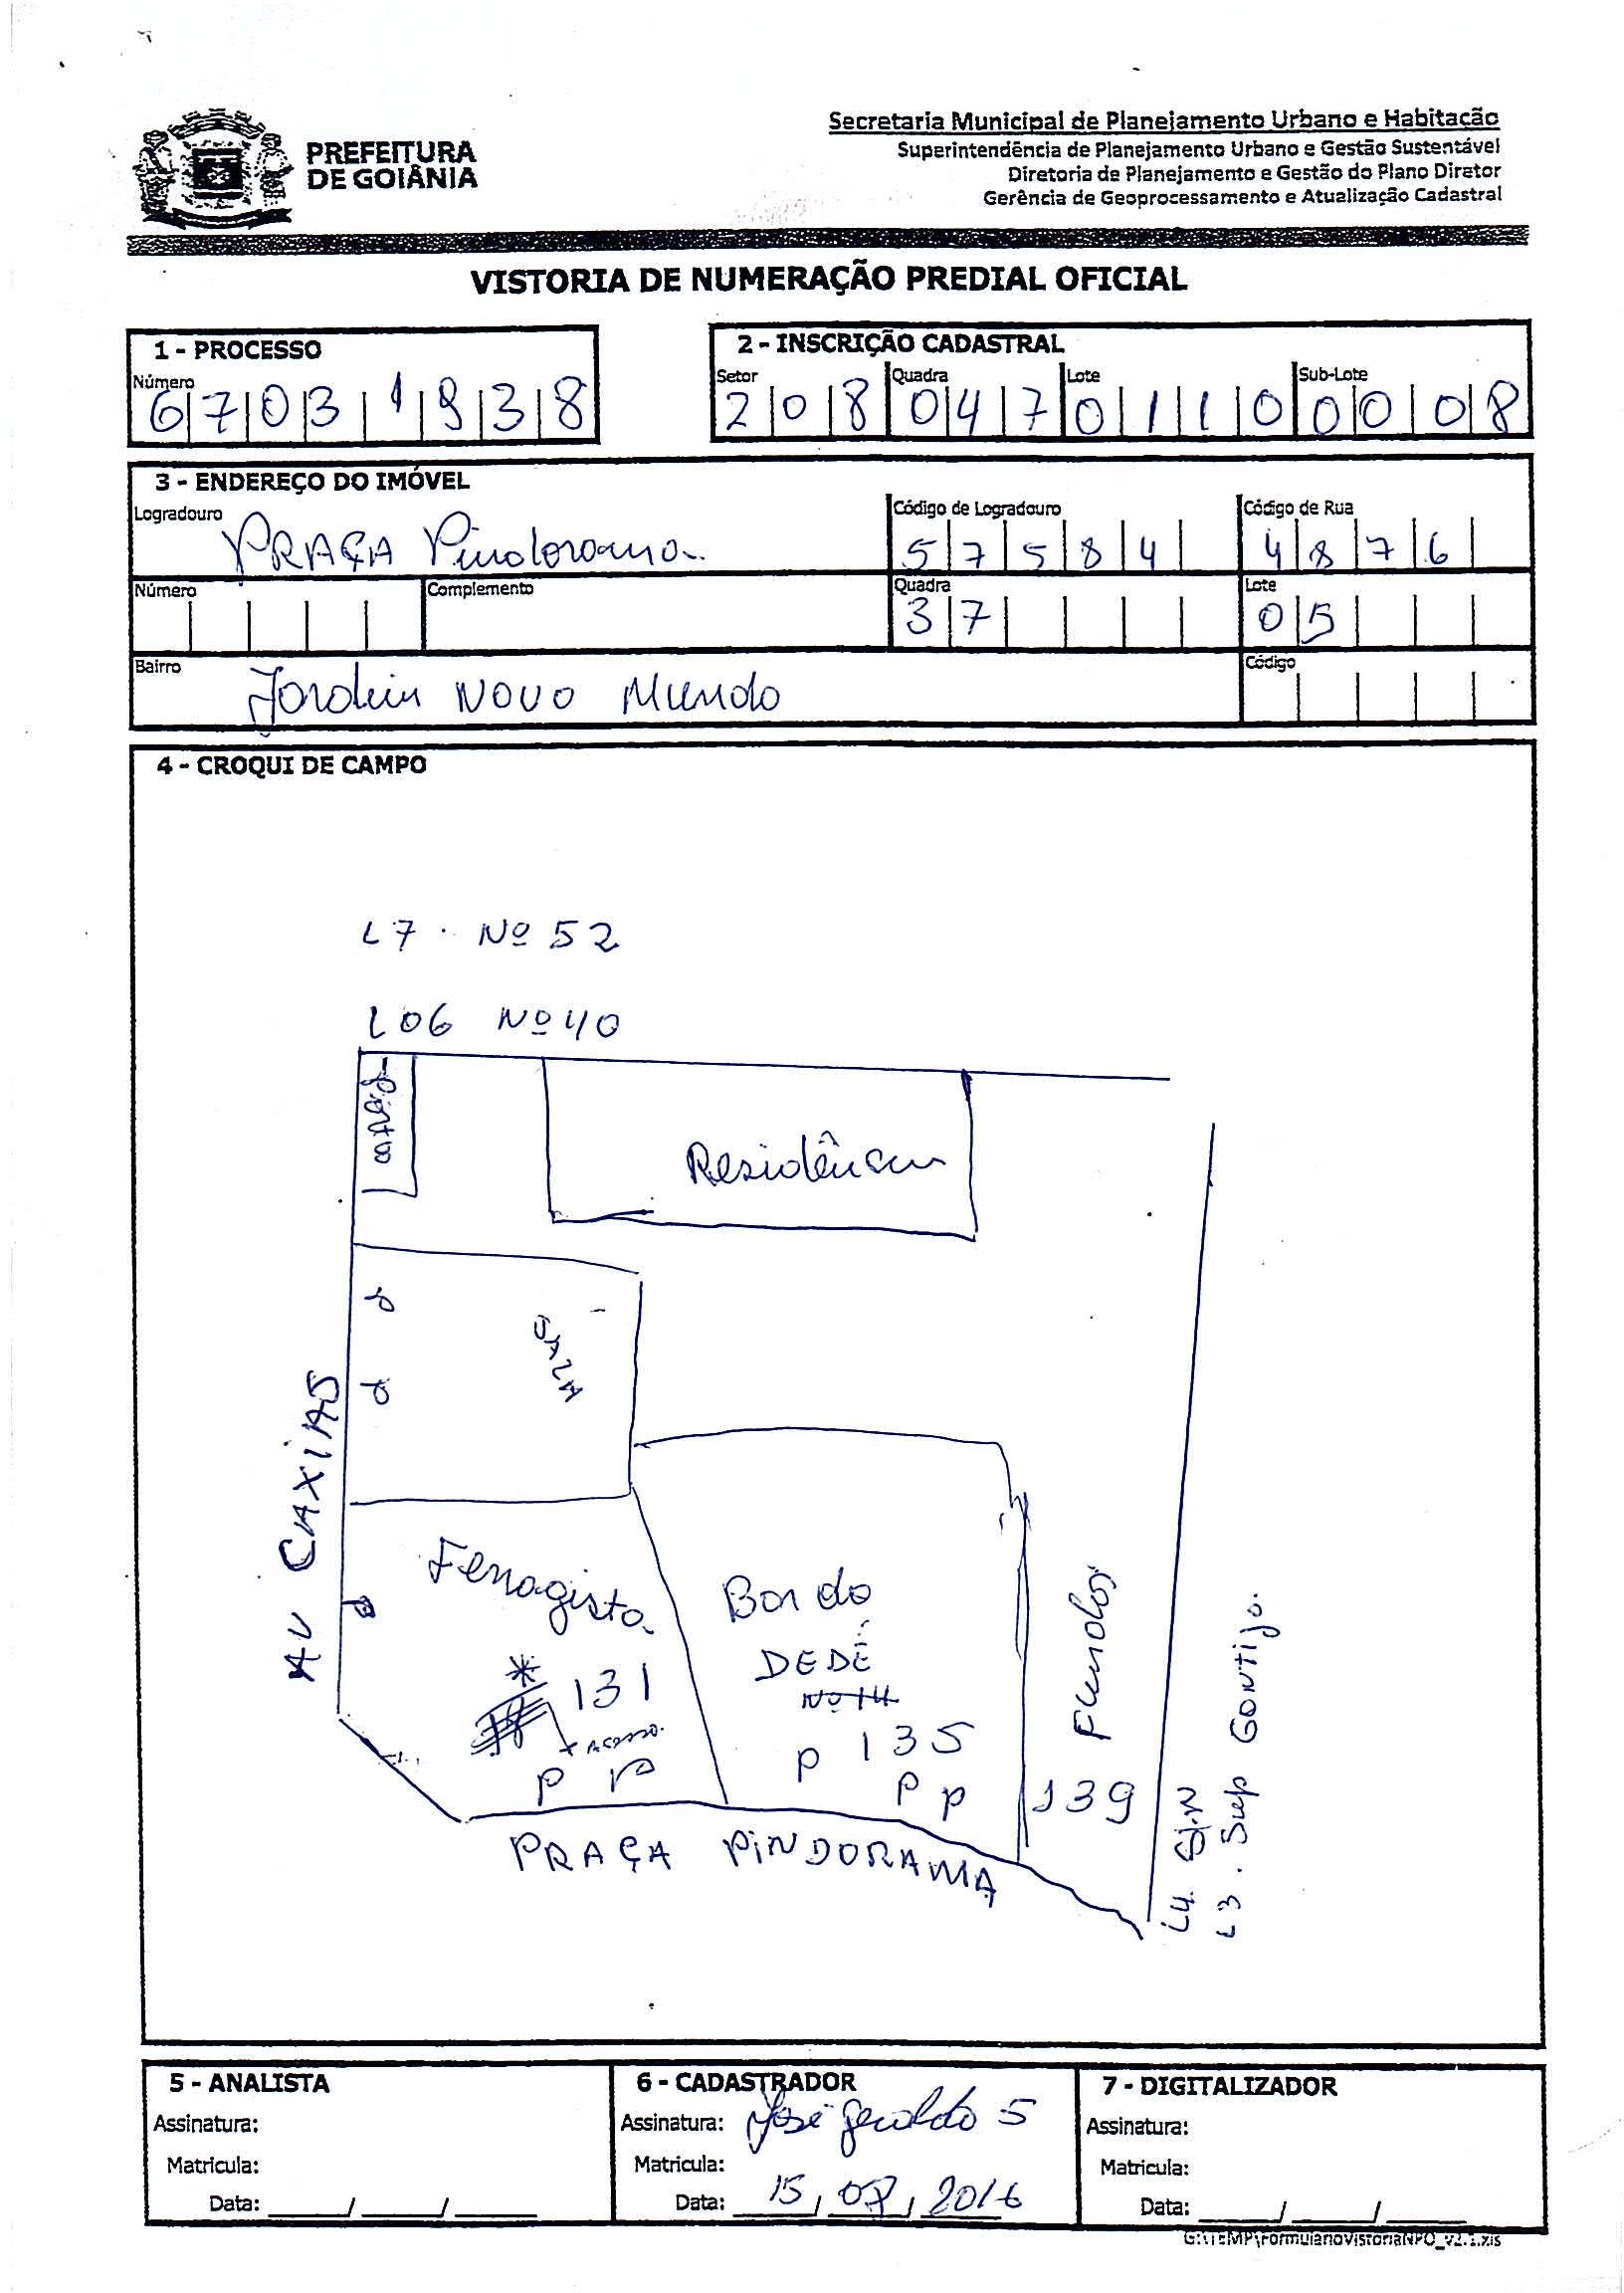 PREFEITURA
DE GOIÂNIA
Secretaria Municipal de Planejamento Urbano e Habitação
Superintendência de Planejamento Urbano e Gestão Sustentável
Diretoria de Planejamento e Gestão do Plano Diretor
Gerência de Geoprocessamento e Atualização Cadastral
VISTORIA DE NUMERAÇÃO PREDIAL OFICIAL
1 - PROCESSO
Número
6 7 0 3 1 9 3 8
2 - INSCRIÇÃO CADASTRAL
Setor Quadra Lote Sub-Lote
2 0 8 0 4 7 0 1 1 0 0 0 0 8
3 - ENDEREÇO DO IMÓVEL
Logradouro Código de Logradouro Código de Rua
PRAÇA Pindorama 5 7 5 8 4 4 8 7 6
Número Complemento Quadra Lote
3 7 0 5
Bairro Código
Jardim NOVO Mundo
4 - CROQUI DE CAMPO
L7 . Nº 52
L06 Nº 40
Residência
SALA
AV CAXIAS
Ferragista
* 131
+ Acesso.
P P
Bar do
DEDÉ
Nº 14
P 135
P P
Fundos
139
L4. S/N
L3 . Sup Gontijo.
PRAÇA PINDORAMA
5 - ANALISTA
Assinatura:
Matrícula:
Data: ____/____/____
6 - CADASTRADOR
Assinatura: José Geraldo S
Matrícula:
Data: 15/07/2016
7 - DIGITALIZADOR
Assinatura:
Matrícula:
Data: ____/____/____
G:\TEMP\FormularioVistoriaNPO_v2.1.xls